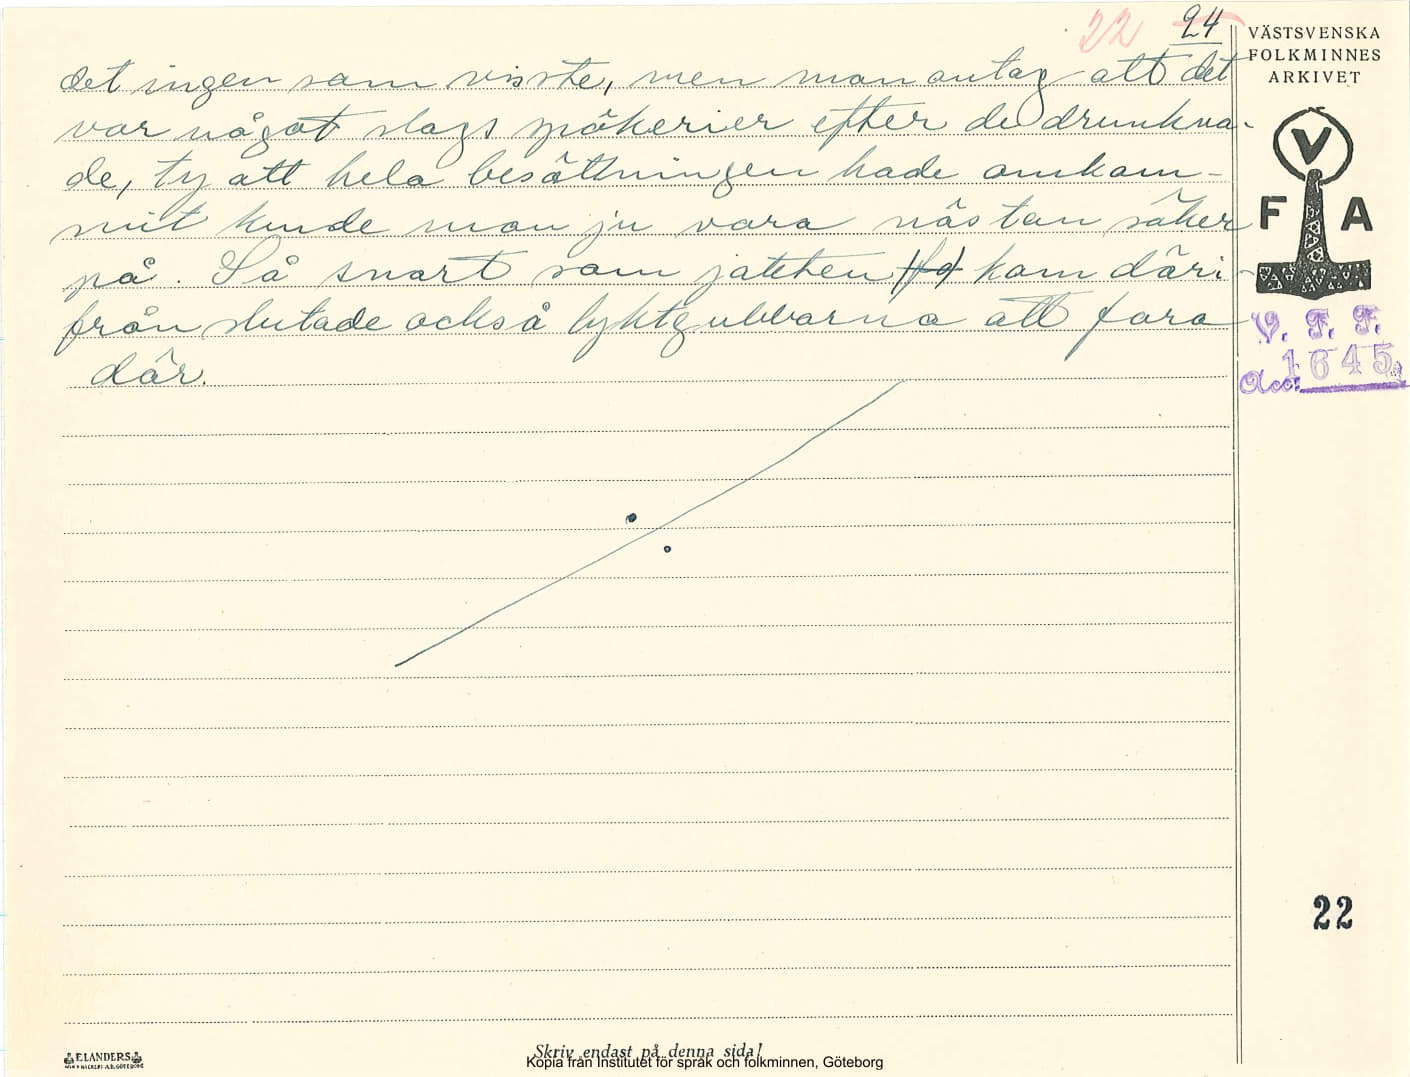 22 24
VÄSTSVENSKA
FOLKMINNES
ARKIVET
det ingen som visste, men man antog att det
var något slags spökerier efter de drunkna-
de, ty att hela besättningen hade omkom-
mit kunde man ju vara nästan säker
på. Så snart som jakten kom däri-
från slutade också lyktgubbarna att fara
där.
V
F A
V. F. F.
1645
Acc:
22
ELANDERS
Skriv endast på denna sida!
Kopia från Institutet för språk och folkminnen, Göteborg